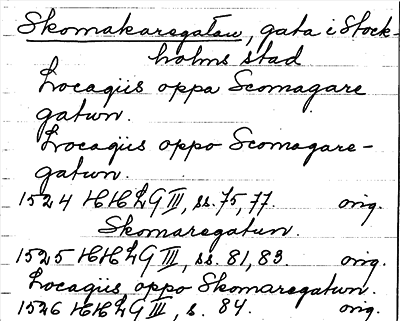 Skomakaregatan, gata i Stock-
holms stad
Locagiis oppa Scomagare
gatwn.
Locagiis oppo Scomagare-
gatwn.
1524 HHLG III, ss. 75, 77. orig.
Skomaregatun.
1525 HHLG III, ss. 81, 83. orig.
Locagiis oppo Skomaregatwn.
1526 HHLG III, s. 84. orig.